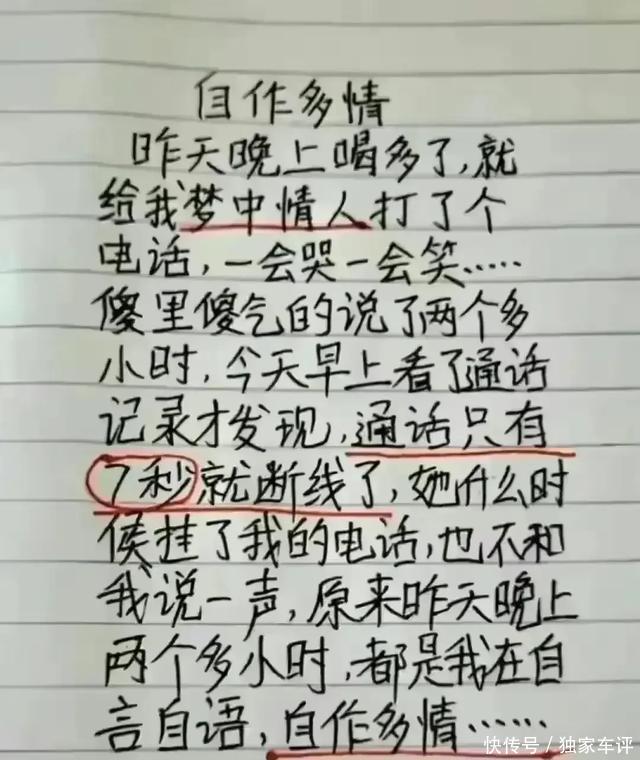 自作多情
昨天晚上喝多了,就
给我梦中情人打了个
电话,一会哭一会笑.....
傻里傻气的说了两个多
小时,今天早上看了通话
记录才发现,通话只有
7秒就断线了,她什么时
侯挂了我的电话,也不和
我说一声,原来昨天晚上
两个多小时,都是我在自
言自语,自作多情......
快传号/独家车评